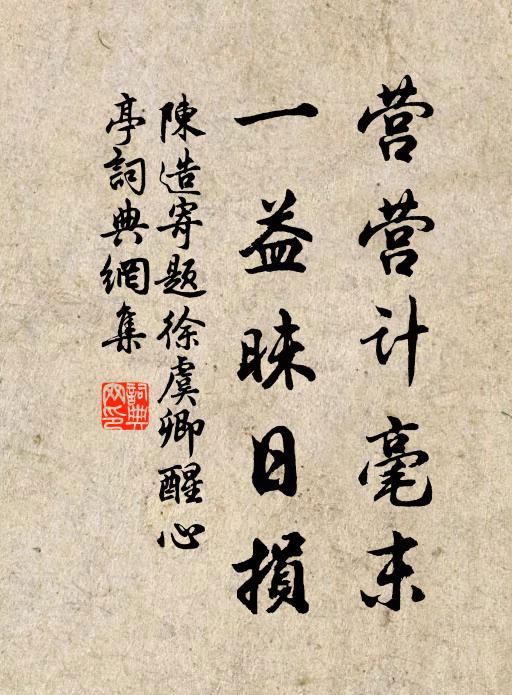 营营计毫末
一益昧日損
陳造寄題徐虞卿醒心
亭詞典網集
詞典網印